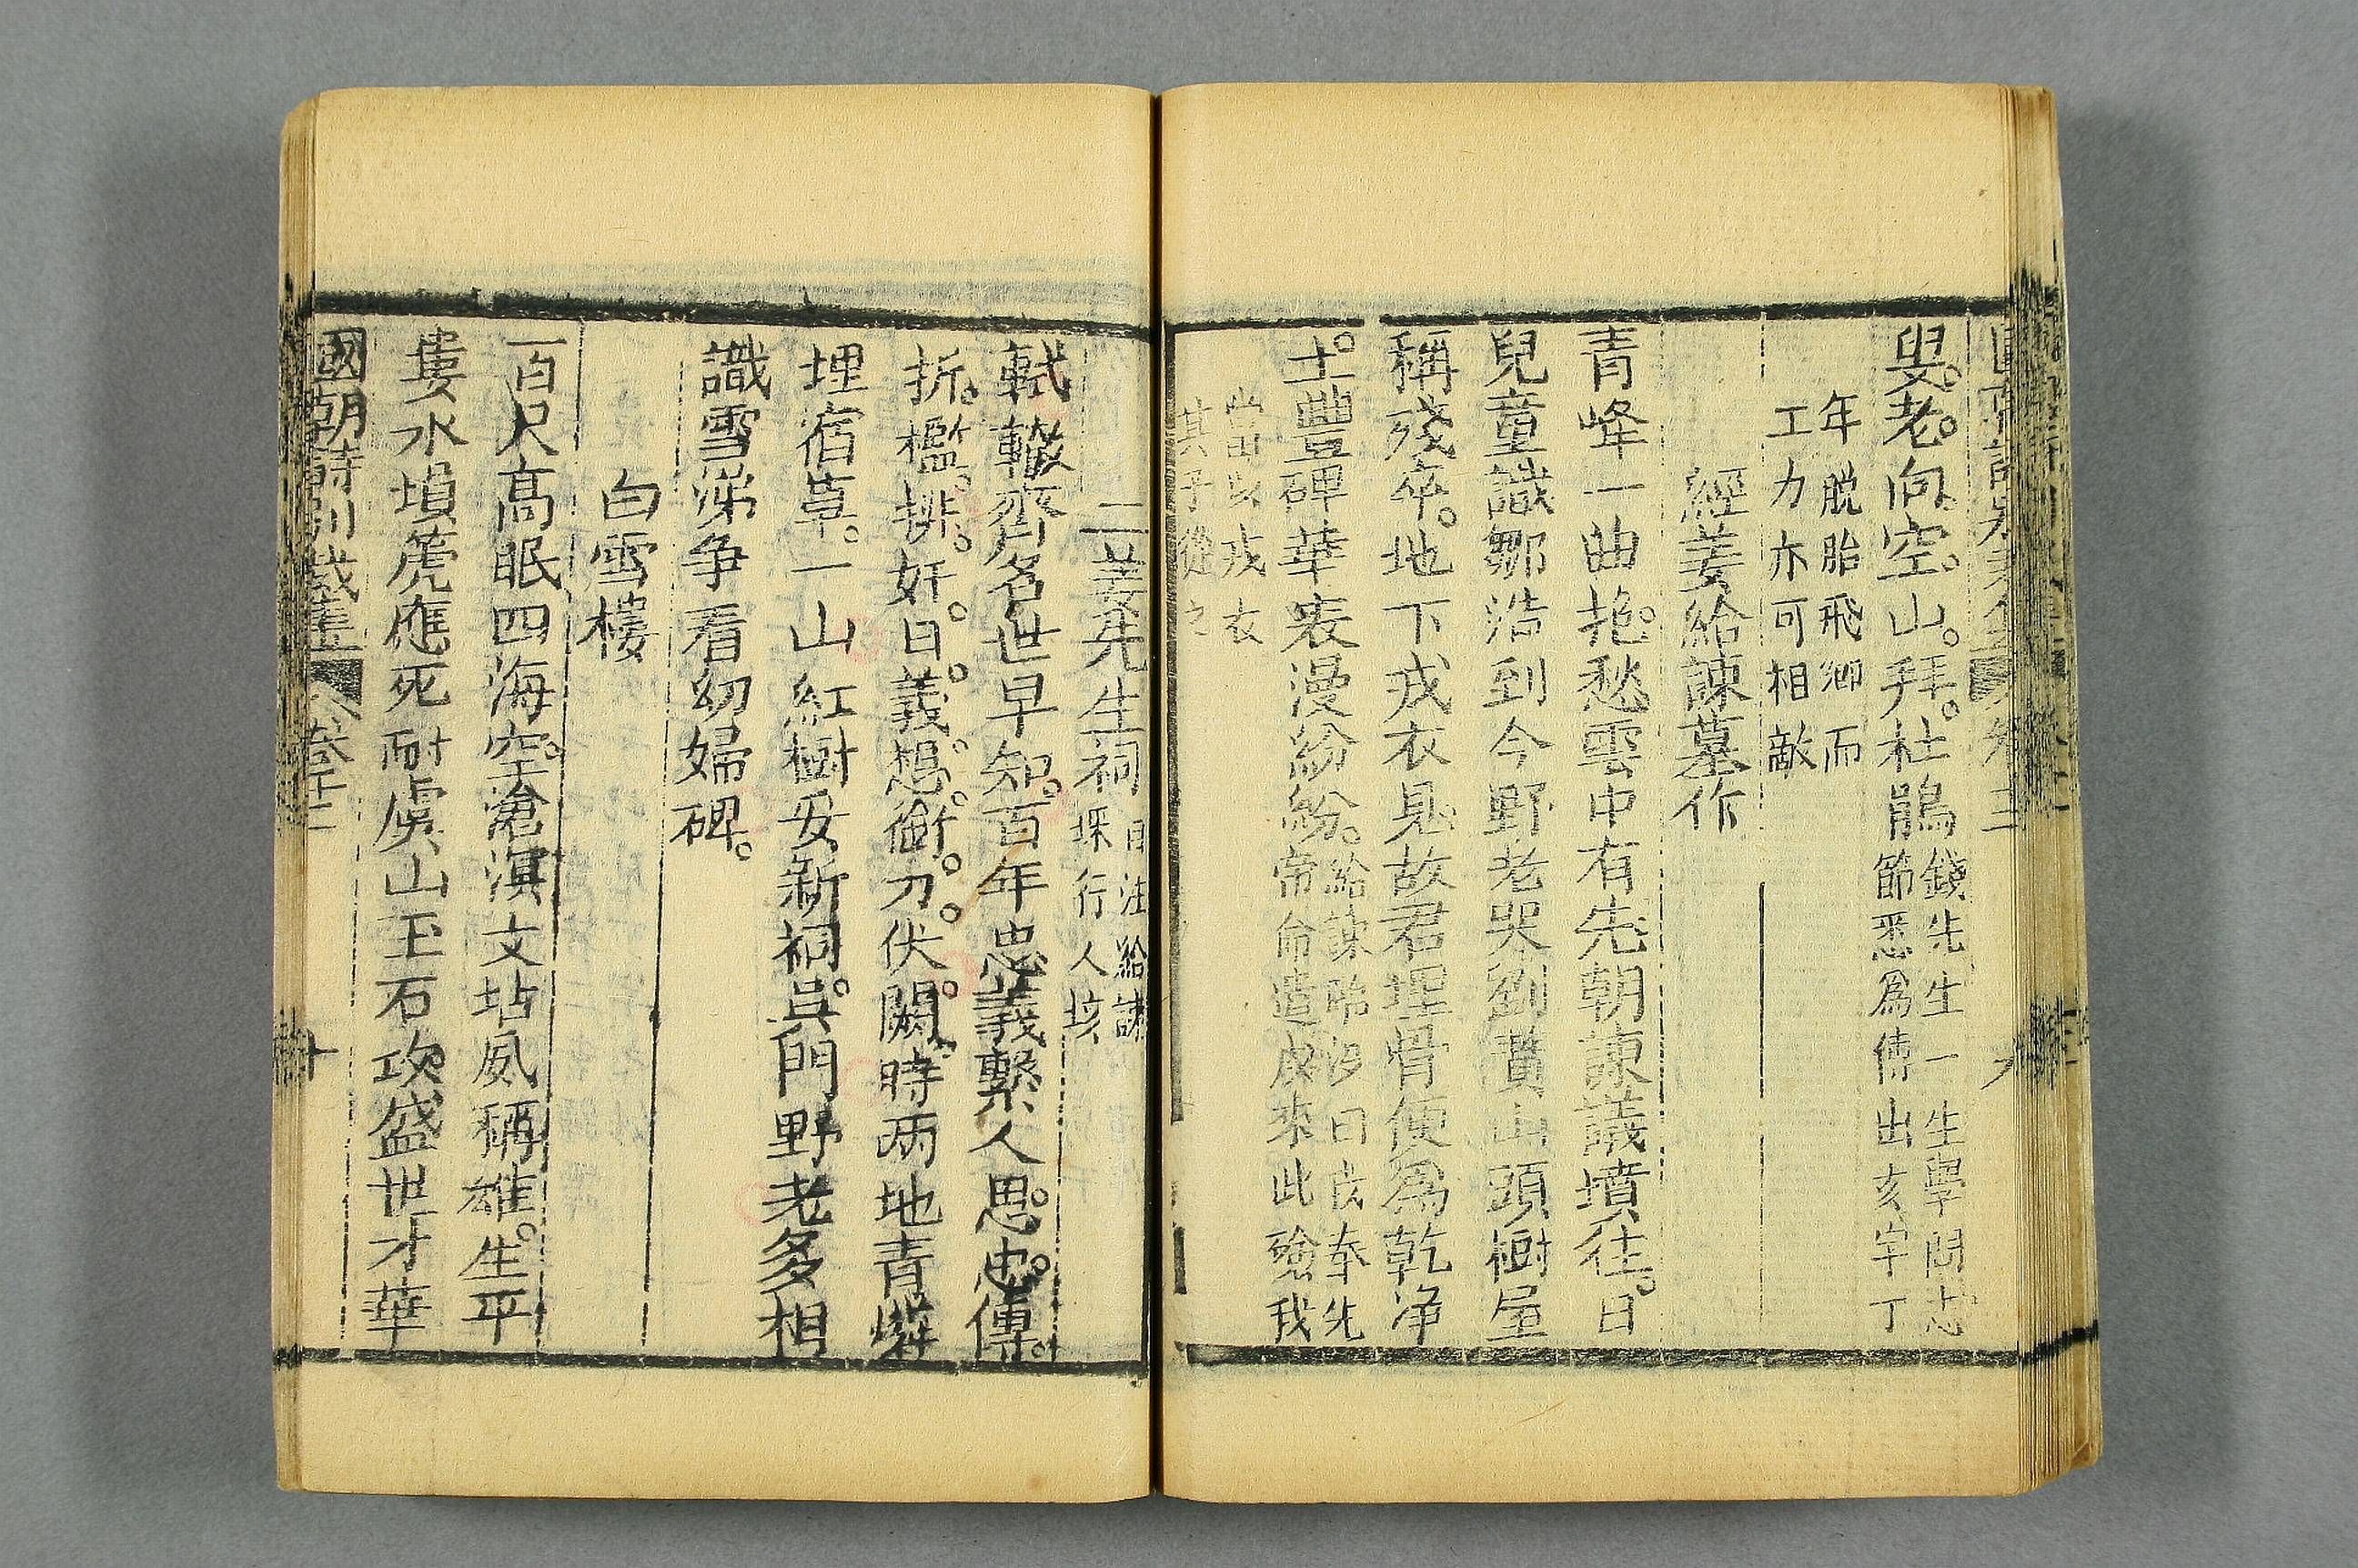 叟老向空山拜杜鵑錢先生一生學問志
節悉爲傳出亥字丁
年脱胎飛卿而
工力亦可相敵
經姜給諫墓作
青峰一曲抱愁雲中有先朝諫議墳往日
兒童識鄒浩到今野老哭劉蕡山頭樹屋
稱殘卒地下戎衣見故君埋骨便爲乾净
土豐碑華表漫紛紛給諫臨没曰我奉先
帝命遣戍來此殮我
當以戎衣
其子從之
二姜先生祠自注給諫
埰行人垓
軾轍齊名世早知百年忠義繫人思忠傳
折檻排奸日義想銜刀伏闕時兩地青燐
埋宿草一山紅樹妥新祠吳門野老多相
識雪涕争看幼婦碑
白雪樓
百尺高眠四海空滄溟文坫夙稱雄生平
婁水塤箎應死耐虞山玉石攻盛世才華
國朝詩别裁集 卷十二 十